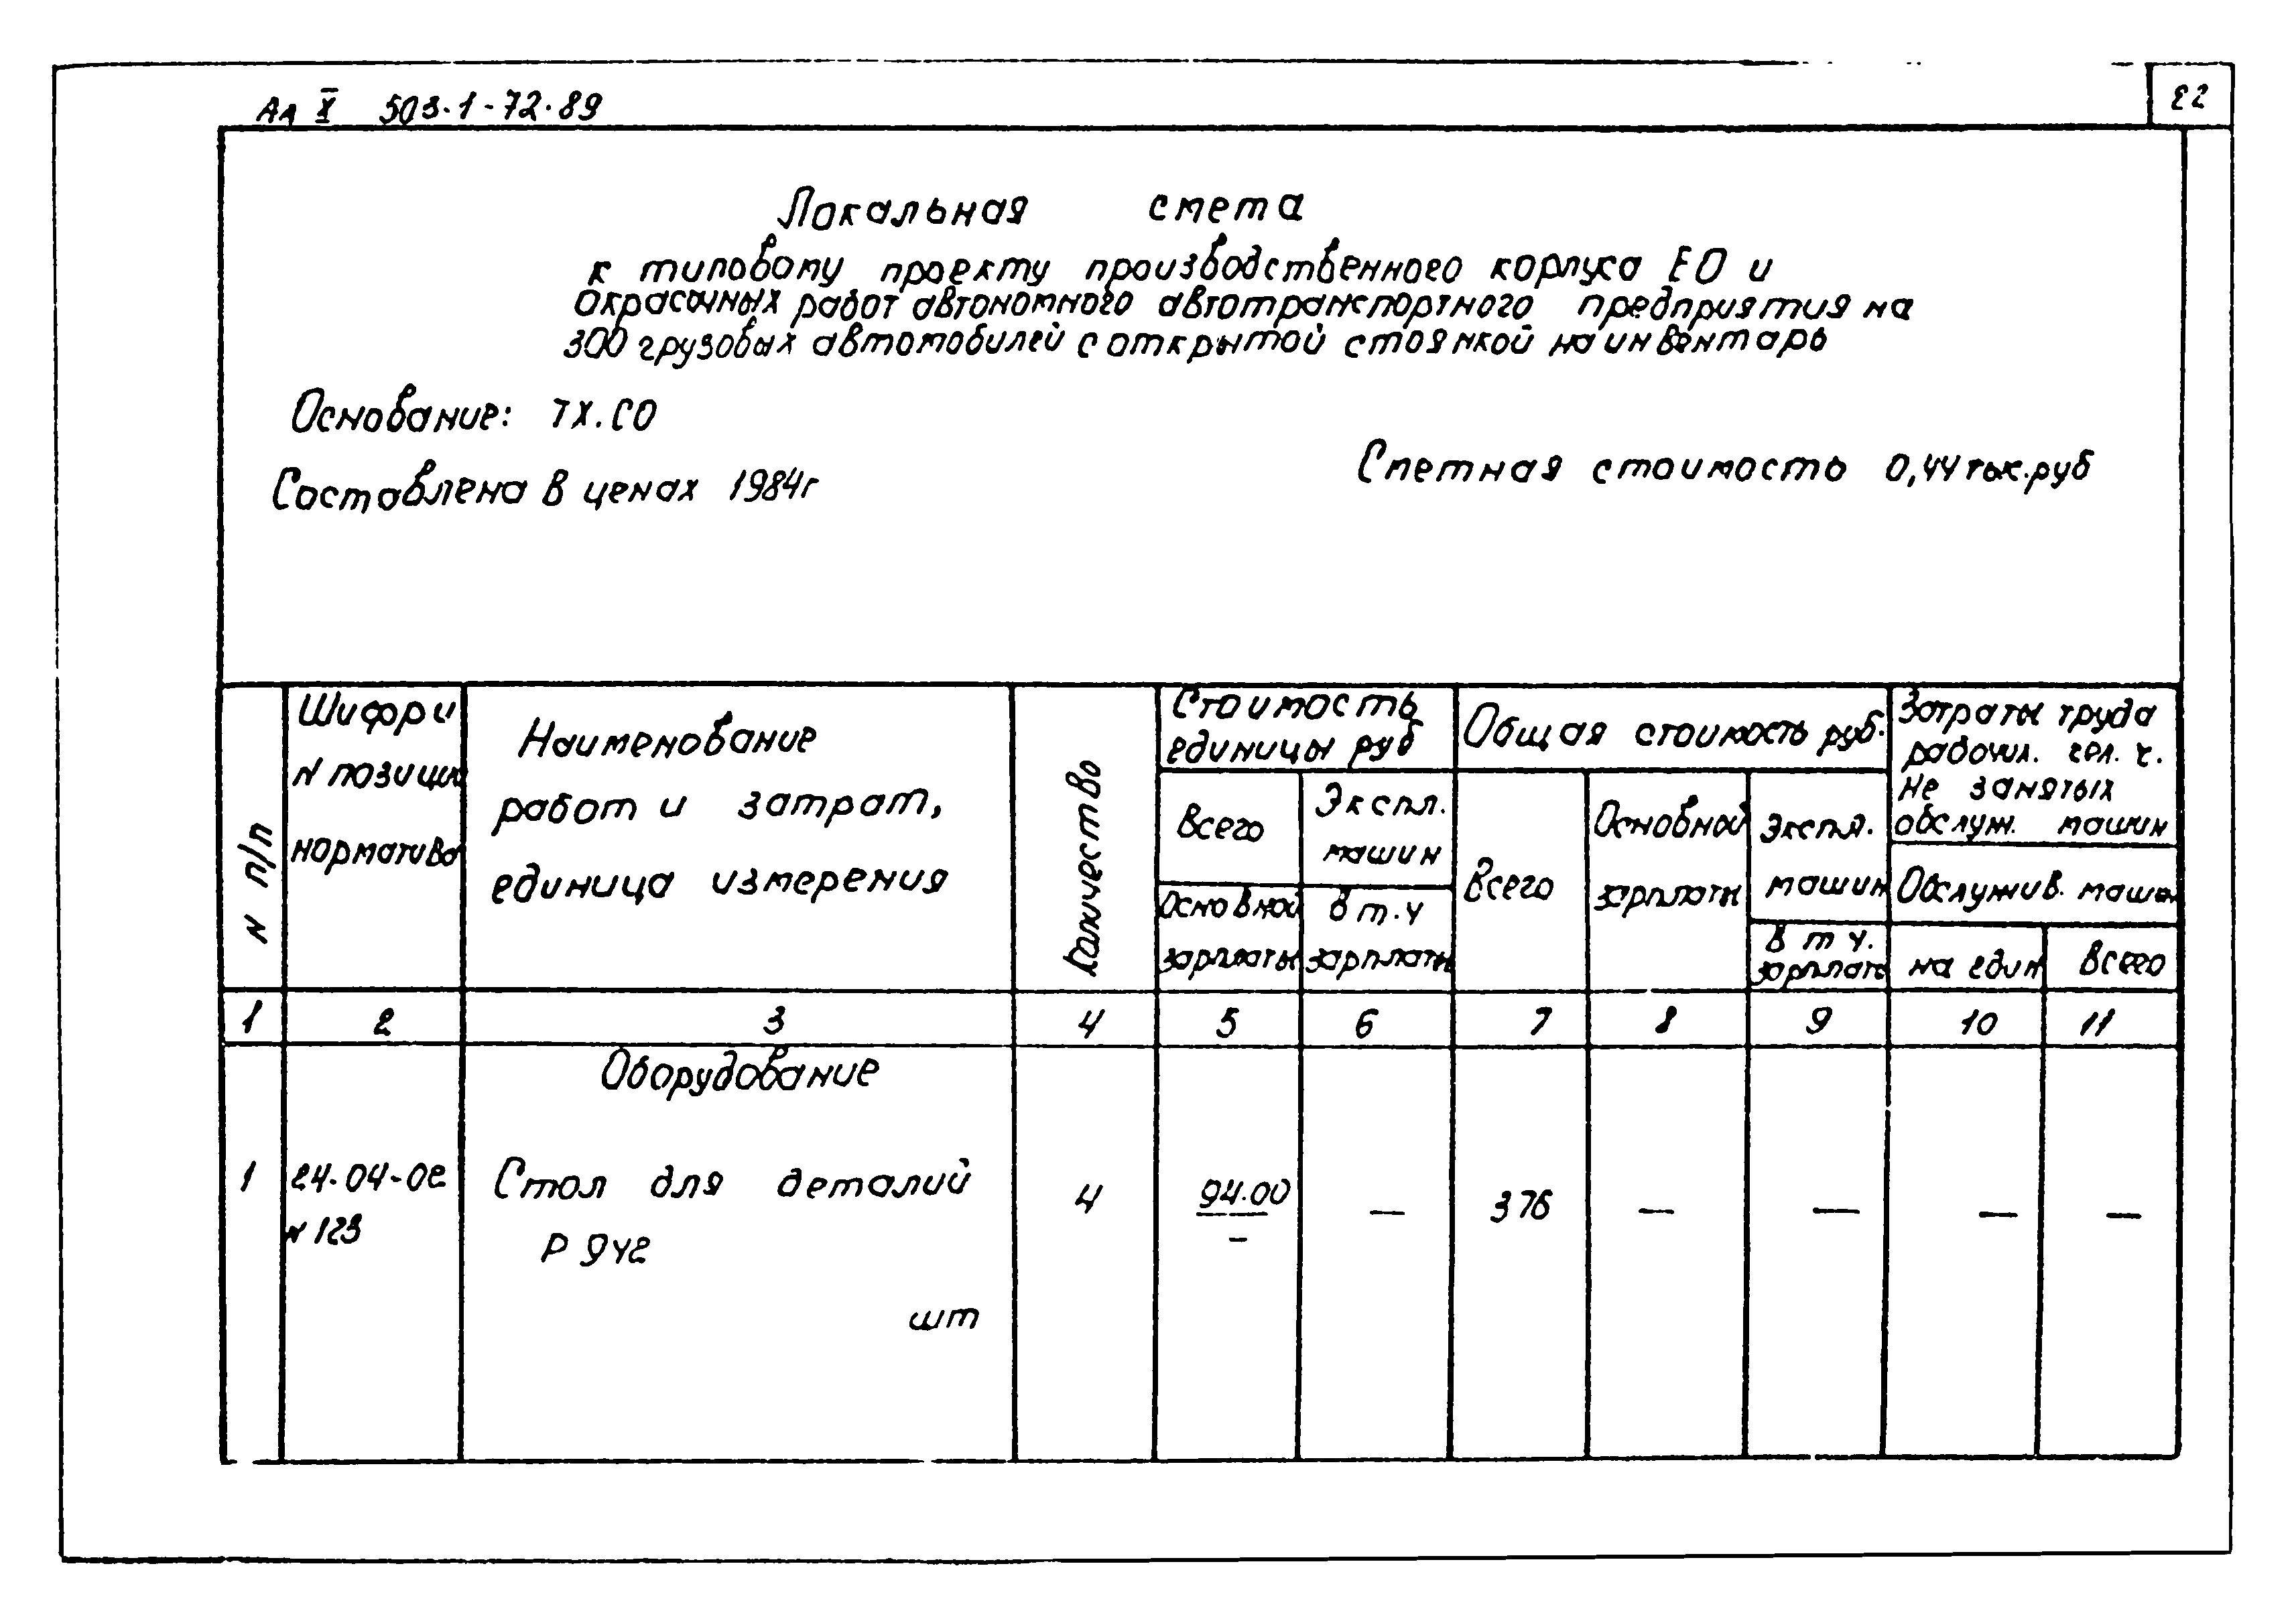 Ал X 503-1-72.89
22
Локальная смета
к типовому проекту производственного корпуса ЕО и
окрасочных работ автономного автотранспортного предприятия на
300 грузовых автомобилей с открытой стоянкой на инвентарь
Основание: ТХ.СО
Сметная стоимость 0,44 тыс.руб
Составлена в ценах 1984г
N п/п
Шифр и
N позиции
норматива
Наименование
работ и затрат,
единица измерения
Количество
Стоимость
единицы руб
Всего
Основной
зарплаты
Экспл.
машин
в т.ч
зарплаты
Общая стоимость руб.
Всего
Основной
зарплаты
Экспл.
машин
в т ч.
зарплаты
Затраты труда
рабочих. чел. ч.
не занятых
обслуж. машин
Обслужив. машин
на един
всего
1 2 3 4 5 6 7 8 9 10 11
Оборудование
1 24-04-02 Стол для деталий 4 94.00 — 376 — — — —
N 123 Р 942 —
шт